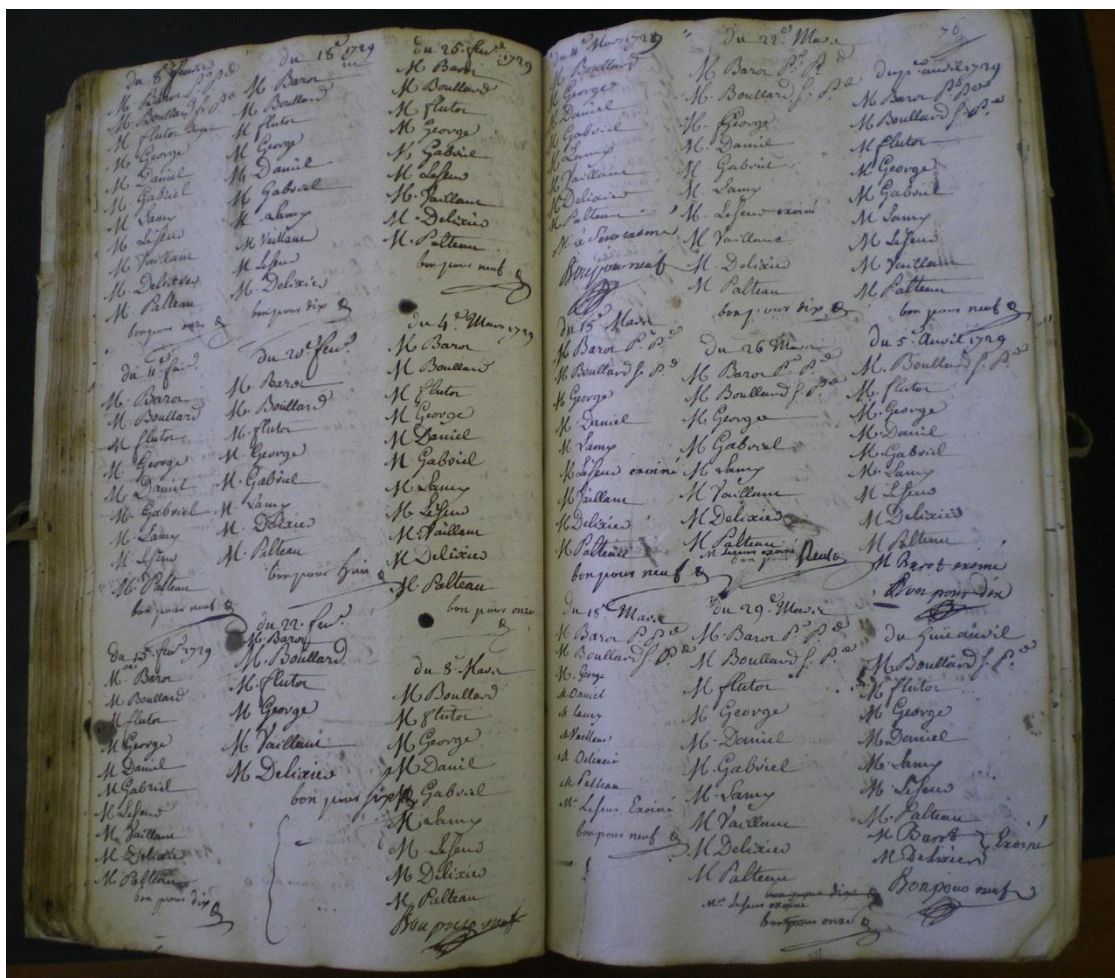 du 8e Janvier
M Baron Pr Pd
M. Boullard f. Pd
M flutor
M George
M Daniel
M Gabriel
M Lamy
M Leseur
M Vaillant
M Delixieu
M Palteau
bon pour onze
du 11e
M. Baron
M Boullard
M flutor
M George
M Daniel
M. Gabriel
M. Lamy
M. Leseur
M. Palteau
bon pour neuf
du 15e feuv 1729
M Baron
M Boullard
M flutor
M George
M Daniel
M Gabriel
M Leseur
M Vaillant
M Delixieu
M Palteau
bon pour dix
du 18e 1729
M Baron
M Boullard
M flutor
M George
M Daniel
M Gabriel
M Lamy
M Vaillant
M Leseur
M. Delixieu
bon pour dix
du 20e feuv.
M. Baron
M. Boullard
M. flutor
M. George
M. Gabriel
M. Lamy
M. Delixieu
M. Palteau
bon pour huit
du 22. feuv.
M. Baron
M. Boullard
M. flutor
M George
M Vaillant
M Delixieu
bon pour six
du 25. feuv. 1729
M Baron
M Boullard
M flutor
M George
M. Gabriel
M Leseur
M. Vaillant
M. Delixieu
M. Palteau
bon pour neuf
du 4e Mars 1729
M Baron
M Boullard
M flutor
M George
M Daniel
M Gabriel
M Lamy
M Leseur
M. Vaillant
M Delixieu
M. Palteau
bon pour onze
du 8e Mars
M Boullard
M flutor
M George
M Daniel
M Gabriel
M Lamy
M. Leseur
M. Delixieu
M. Palteau
Bon pour neuf
76
Mars 1729
M Boullard
M George
M Daniel
M Gabriel
M Lamy
M Vaillant
M Delixieu
M Palteau
Bon pour neuf
du 15e Mars
M Baron Pr Pd
M Boullard f. Pd
M George
M. Daniel
M Lamy
M Leseur exoiné
M Vaillant
M Delixieu
M Palteau
bon pour neuf
du 18e Mars
M Baron Pr Pd
M Boullard f. Pd
M. George
M Daniel
M Lamy
M Vaillant
M Delixieu
M Palteau
Mr Leseur Exoiné
bon pour neuf
du 22e Mars
M Baron Pr Pd
M. Boullard f. Pd
M. George
M. Daniel
M Gabriel
M Lamy
M. Leseur exoiné
M Vaillant
M. Delixieu
M Palteau
bon pour dix
du 26 Mars
M Baron Pr Pd
M Boullard f. Pd
M George
M Gabriel
M Lamy
M Vaillant
M Delixieu
M Palteau
M Leseur exoiné
bon pour Neuf
du 29e Mars
M. Baron Pr Pd
M Boullard f. Pd
M flutor
M George
M Daniel
M. Gabriel
M. Lamy
M Vaillant
M Delixieu
M Palteau
bon pour dix
Mr Leseur exoiné
bon pour onze
avril 1729
M Baron Pr Pd
M Boullard f. Pd
M flutor
M George
M Gabriel
M Lamy
M Leseur
M Vaillant
M Palteau
bon pour neuf
du 5e Avril 1729
M. Boullard f. Pd
M. flutor
M. George
M. Daniel
M. Gabriel
M. Lamy
M Leseur
M Delixieu
M Palteau
M Barot exoiné
Bon pour Dix
du huit avril
M Boullard f. P.
M flutor
M George
M Daniel
M. Lamy
M. Leseur
M. Palteau
M Barot } Exoiné
M Delixieu
Bon pour neuf